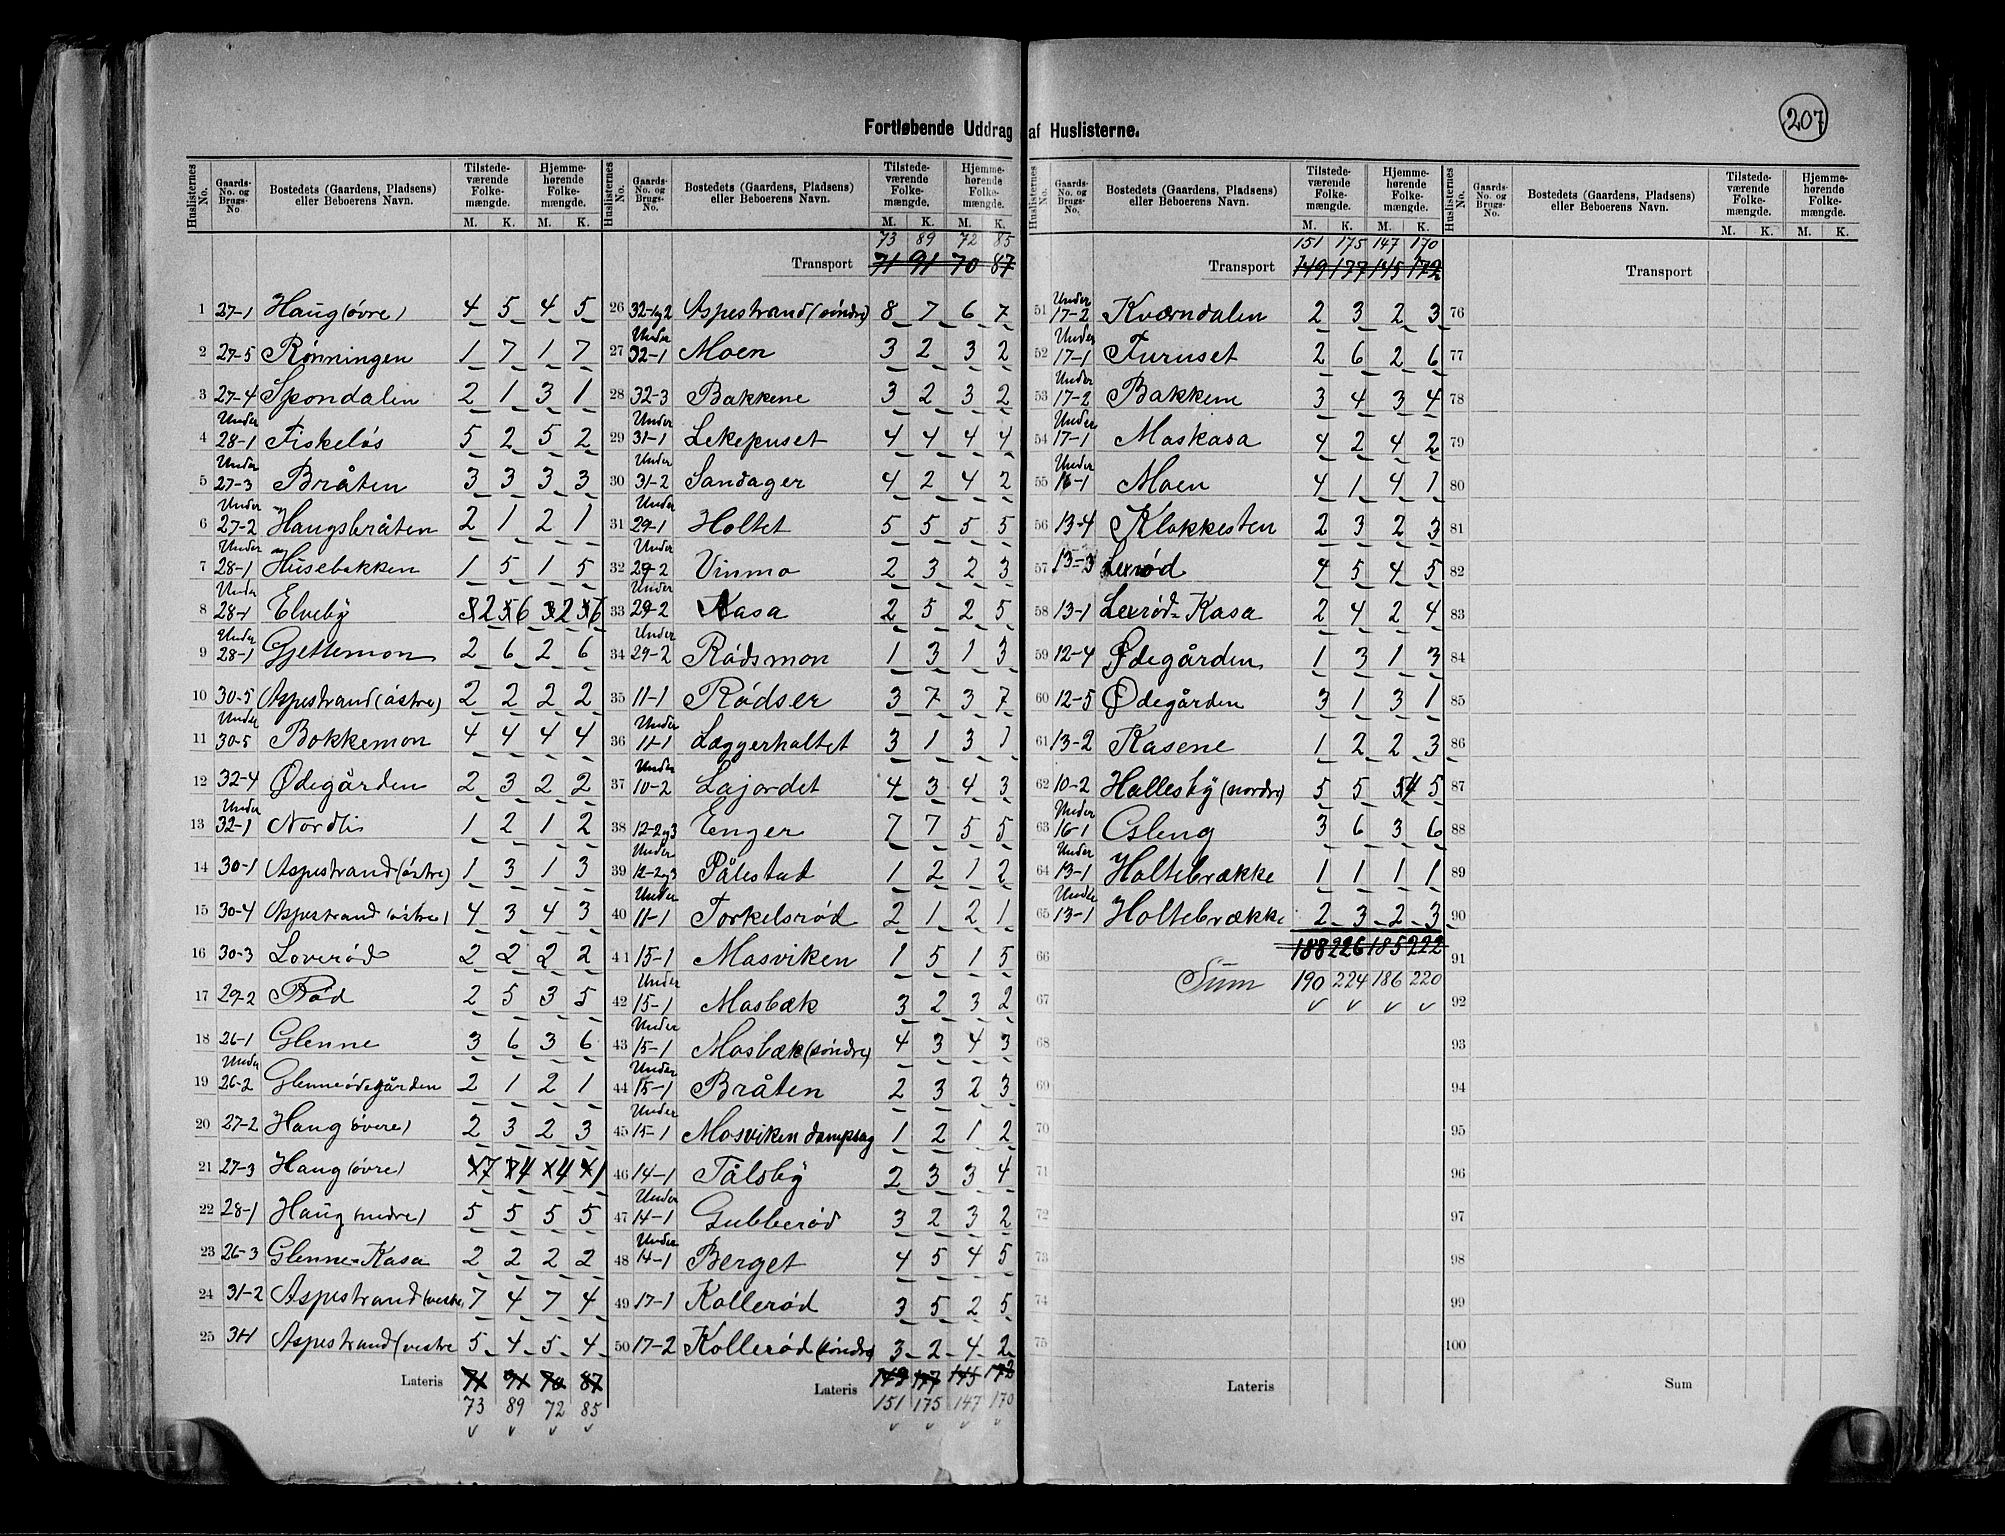 207
Fortløbende Uddrag af Huslisterne.
Huslisternes No. Gaards-No. og Brugs-No. Bostedets (Gaardens, Pladsens) eller Beboerens Navn. Tilstedeværende Folkemængde. M. K. Hjemmehørende Folkemængde. M. K.
1 27-1 Haug (øvre) 4 5 4 5
2 27-5 Rønningen 1 7 1 7
3 27-4 Spondalen 2 1 3 1
4 Under 28-1 Fiskeløs 5 2 5 2
5 Under 27-3 Bråten 3 3 3 3
6 Under 27-2 Haugsbråten 2 1 2 1
7 Under 28-1 Husebakken 1 5 1 5
8 Under 28-1 Elveby 2 6 2 6
9 Under 28-1 Gjettemon 2 6 2 6
10 30-5 Aspestrand (østre) 2 2 2 2
11 Under 30-5 Bokkemon 4 4 4 4
12 32-4 Ødegården 2 3 2 2
13 Under 32-1 Nordli 1 2 1 2
14 30-1 Aspestrand (østre) 1 3 1 3
15 30-4 Aspestrand (østre) 4 3 4 3
16 30-3 Loverød 2 2 2 2
17 29-2 Rød 2 5 3 5
18 26-1 Glenne 3 6 3 6
19 Under 26-2 Glenneødegården 2 1 2 1
20 27-2 Haug (øvere) 2 3 2 3
21 27-3 Haug (øvre)
22 28-1 Haug (nedre) 5 5 5 5
23 26-3 Glenne-Kasa 2 2 2 2
24 31-2 Aspestrand (vestre) 7 4 7 4
25 31-1 Aspestrand (vestre 5 4 5 4
Lateris 71 91 70 87
73 89 72 85
Huslisternes No. Gaards-No. og Brugs-No. Bostedets (Gaardens, Pladsens) eller Beboerens Navn. Tilstedeværende Folkemængde. M. K. Hjemmehørende Folkemængde. M. K.
73 89 72 85
Transport 71 91 70 87
26 32-1og2 Aspestrand (søndre) 8 7 6 7
27 Under 32-1 Moen 3 2 3 2
28 32-3 Bakkene 3 2 3 2
29 Under 31-1 Lekepuset 4 4 4 4
30 Under 31-2 Sandager 4 2 4 2
31 Under 29-1 Holtet 5 5 5 5
32 Under 29-2 Vinmo 2 3 2 3
33 Under 29-2 Kasa 2 5 2 5
34 Under 29-2 Rødsmon 1 3 1 3
35 11-1 Rødser 3 7 3 7
36 Under 11-1 Læggerholtet 3 1 3 1
37 Under 10-2 Lajordet 4 3 4 3
38 12-2og3 Enger 7 7 5 5
39 Under 12-2og3 Pålestad 1 2 1 2
40 Under 11-1 Torkelsrød 2 1 2 1
41 15-1 Mosviken 1 5 1 5
42 Under 15-1 Mosbæk 3 2 3 2
43 Under 15-1 Mosbæk (søndre) 4 3 4 3
44 Under 15-1 Bråten 2 3 2 3
45 Under 15-1 Mosviken dampsag 1 2 1 2
46 14-1 Tålsby 2 3 3 4
47 Under 14-1 Gubberød 3 2 3 2
48 Under 14-1 Berget 4 5 4 5
49 17-1 Kollerød 3 5 2 5
50 17-2 Kollerød (søndre) 3 2 4 2
Lateris 149 177 145 172
151 175 147 170
Huslisternes No. Gaards-No. og Brugs-No. Bostedets (Gaardens, Pladsens) eller Beboerens Navn. Tilstedeværende Folkemængde. M. K. Hjemmehørende Folkemængde. M. K.
151 175 147 170
Transport 149 177 145 172
51 Under 17-2 Kværndalen 2 3 2 3
52 Under 17-1 Furuset 2 6 2 6
53 Under 17-2 Bakken 3 4 3 4
54 Under 17-1 Moskasa 4 2 4 2
55 Under 16-1 Moen 4 1 4 1
56 13-4 Klokkesten 2 3 2 3
57 13-3 Lexrød 4 5 4 5
58 13-1 Lexrød-Kasa 2 4 2 4
59 12-4 Ødegården 1 3 1 3
60 12-5 Ødegården 3 1 3 1
61 13-2 Kasene 1 2 2 3
62 10-2 Hallesby (nordre) 5 5 4 5
63 Under 16-1 Gsleng 3 6 3 6
64 Under 13-1 Holtebrække 1 1 1 1
65 Under 13-1 Holtebrække 2 3 2 3
66 188 226 185 222
Sum 190 224 186 220
67
68
69
70
71
72
73
74
75
Lateris
Huslisternes No. Gaards-No. og Brugs-No. Bostedets (Gaardens, Pladsens) eller Beboerens Navn. Tilstedeværende Folkemængde. M. K. Hjemmehørende Folkemængde. M. K.
Transport
76
77
78
79
80
81
82
83
84
85
86
87
88
89
90
91
92
93
94
95
96
97
98
99
100
Sum